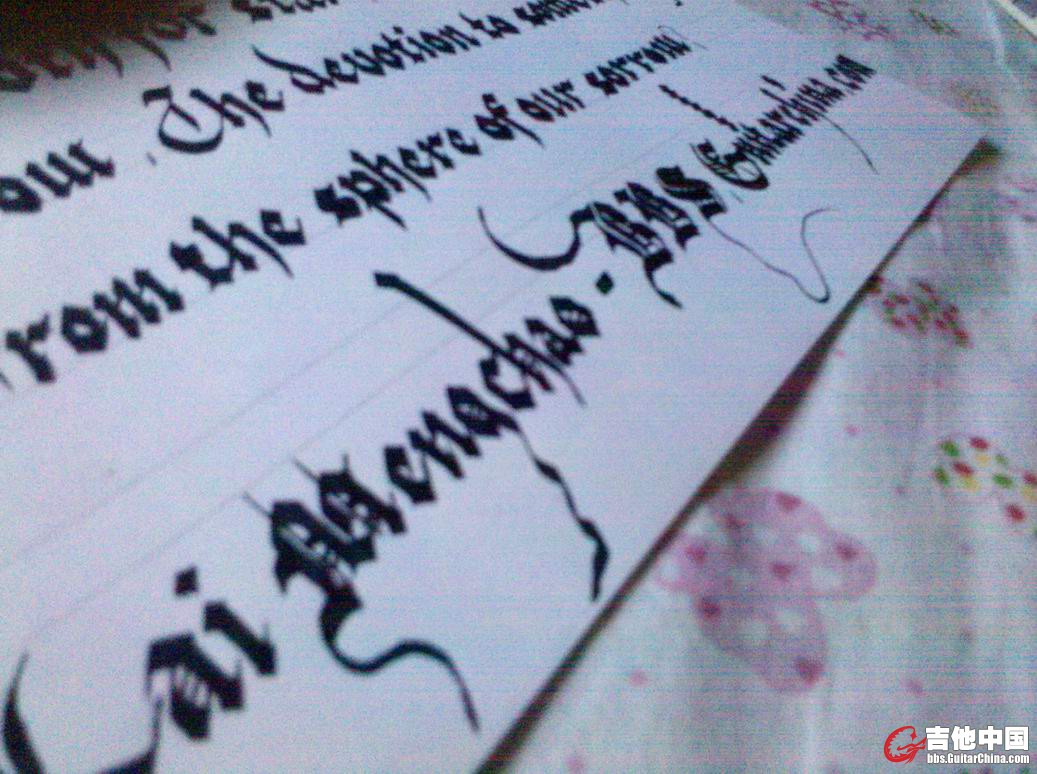 for
our The devotion to
from the sphere of our sorrow
Cai Mengchao · BBS Guitarchina.com
吉他中国
bbs.GuitarChina.com